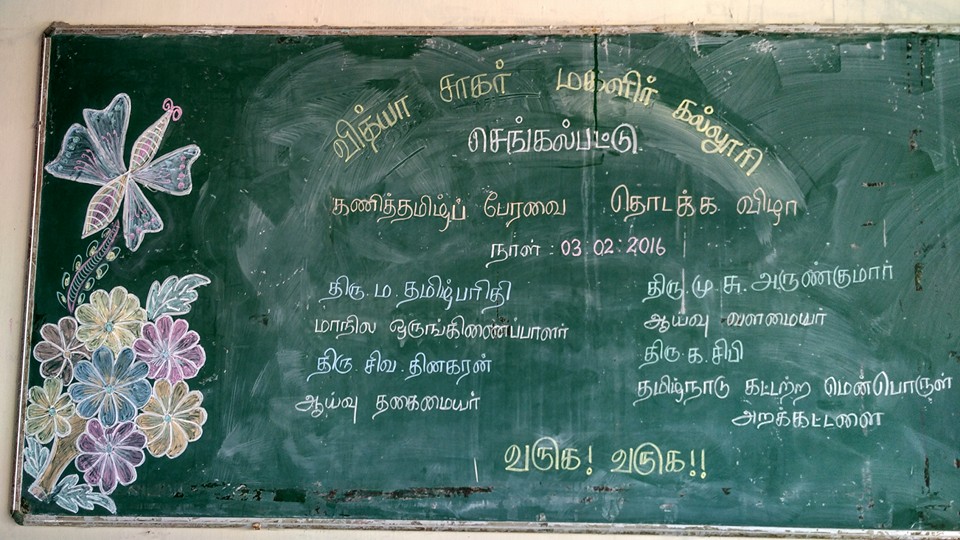 வித்யா சாகர் மகளிர் கல்லூரி
செங்கல்பட்டு.
கணித்தமிழ்ப் பேரவை தொடக்க விழா
நாள் : 03.02.2016
திரு. ம. தமிழ்பரிதி
மாநில ஒருங்கிணைப்பாளர்
திரு. சிவ. தினகரன்
ஆய்வு தகைமையர்
திரு. மு. சு. அருண்குமார்
ஆய்வு வளமையர்
திரு. க. சிபி
தமிழ்நாடு கட்டற்ற மென்பொருள்
அறக்கட்டளை
வருக! வருக!!